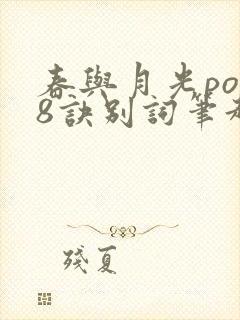 春與月光po
8訣別詞筆
殘夏